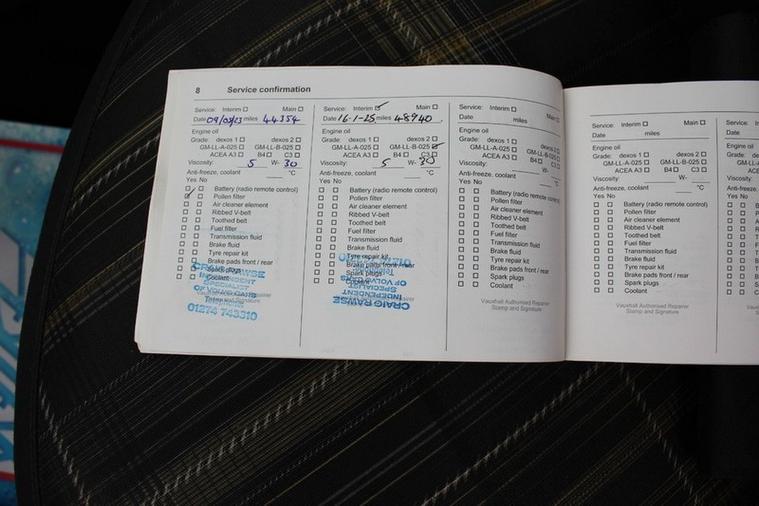 8 Service confirmation
Service: Interim Main
Date 09/03/23 miles 44354
Engine oil
Grade: dexos 1 dexos 2
GM-LL-A-025 GM-LL-B-025
ACEA A3 B4 C3
Viscosity: 5 W- 30
Anti-freeze, coolant °C
Yes No
Battery (radio remote control)
Pollen filter
Air cleaner element
Ribbed V-belt
Toothed belt
Fuel filter
Transmission fluid
Brake fluid
Tyre repair kit
Brake pads front / rear
Spark plugs
Coolant
CRAIG RAWSE
INDEPENDENT
SPECIALIST
OF VOLVO CARS
01274 743310
Service: Interim Main
Date 16-1-25 miles 48940
Engine oil
Grade: dexos 1 dexos 2
GM-LL-A-025 GM-LL-B-025
ACEA A3 B4 C3
Viscosity: 5 W- 30
Anti-freeze, coolant °C
Yes No
Battery (radio remote control)
Pollen filter
Air cleaner element
Ribbed V-belt
Toothed belt
Fuel filter
Transmission fluid
Brake fluid
Tyre repair kit
Brake pads front / rear
Spark plugs
CRAIG RAWSE
INDEPENDENT
SPECIALIST
Service: Interim Main
Date miles
Engine oil
Grade: dexos 1 dexos 2
GM-LL-A-025 GM-LL-B-025
ACEA A3 B4 C3
Viscosity: W-
Anti-freeze, coolant °C
Yes No
Battery (radio remote control)
Pollen filter
Air cleaner element
Ribbed V-belt
Toothed belt
Fuel filter
Transmission fluid
Brake fluid
Tyre repair kit
Brake pads front / rear
Spark plugs
Coolant
Vauxhall Authorised Repairer
Stamp and Signature
Service: Interim Main
Date miles
Engine oil
Grade: dexos 1 dexos 2
GM-LL-A-025 GM-LL-B-025
ACEA A3 B4 C3
Viscosity: W-
Anti-freeze, coolant °C
Yes No
Battery (radio remote control)
Pollen filter
Air cleaner element
Ribbed V-belt
Toothed belt
Fuel filter
Transmission fluid
Brake fluid
Tyre repair kit
Brake pads front / rear
Spark plugs
Coolant
Vauxhall Authorised Repairer
Stamp and Signature